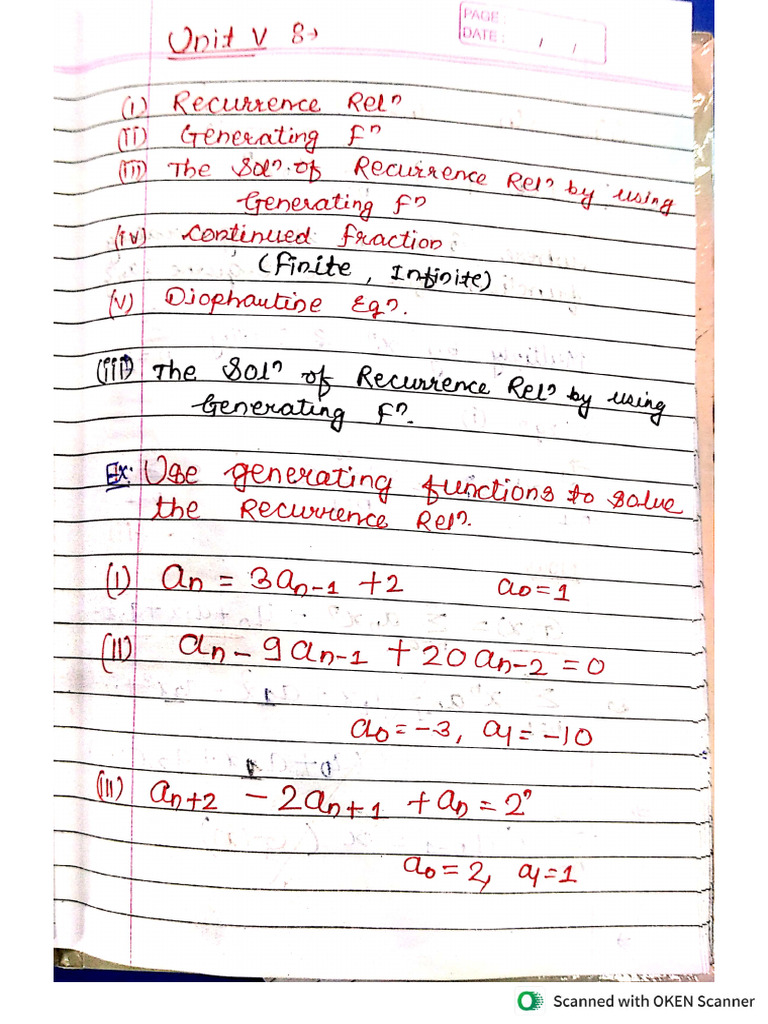 PAGE:
DATE: / /
Unit V 8→
(i) Recurrence Relⁿ
(ii) Generating fⁿ
(iii) The Solⁿ. of Recurrence Relⁿ by using
Generating fⁿ
(iv) continued fraction
(finite, Infinite)
(v) Diophautine Eqⁿ.
(iii) The Solⁿ of Recurrence Relⁿ by using
Generating fⁿ.
Ex: Use generating functions to solve
the Recurrence Relⁿ.
(i) aₙ = 3aₙ₋₁ + 2 a₀ = 1
(ii) aₙ - 9aₙ₋₁ + 20aₙ₋₂ = 0
a₀ = -3, a₁ = -10
(iii) aₙ₊₂ - 2aₙ₊₁ + aₙ = 2ⁿ
a₀ = 2, a₁ = 1
Scanned with OKEN Scanner